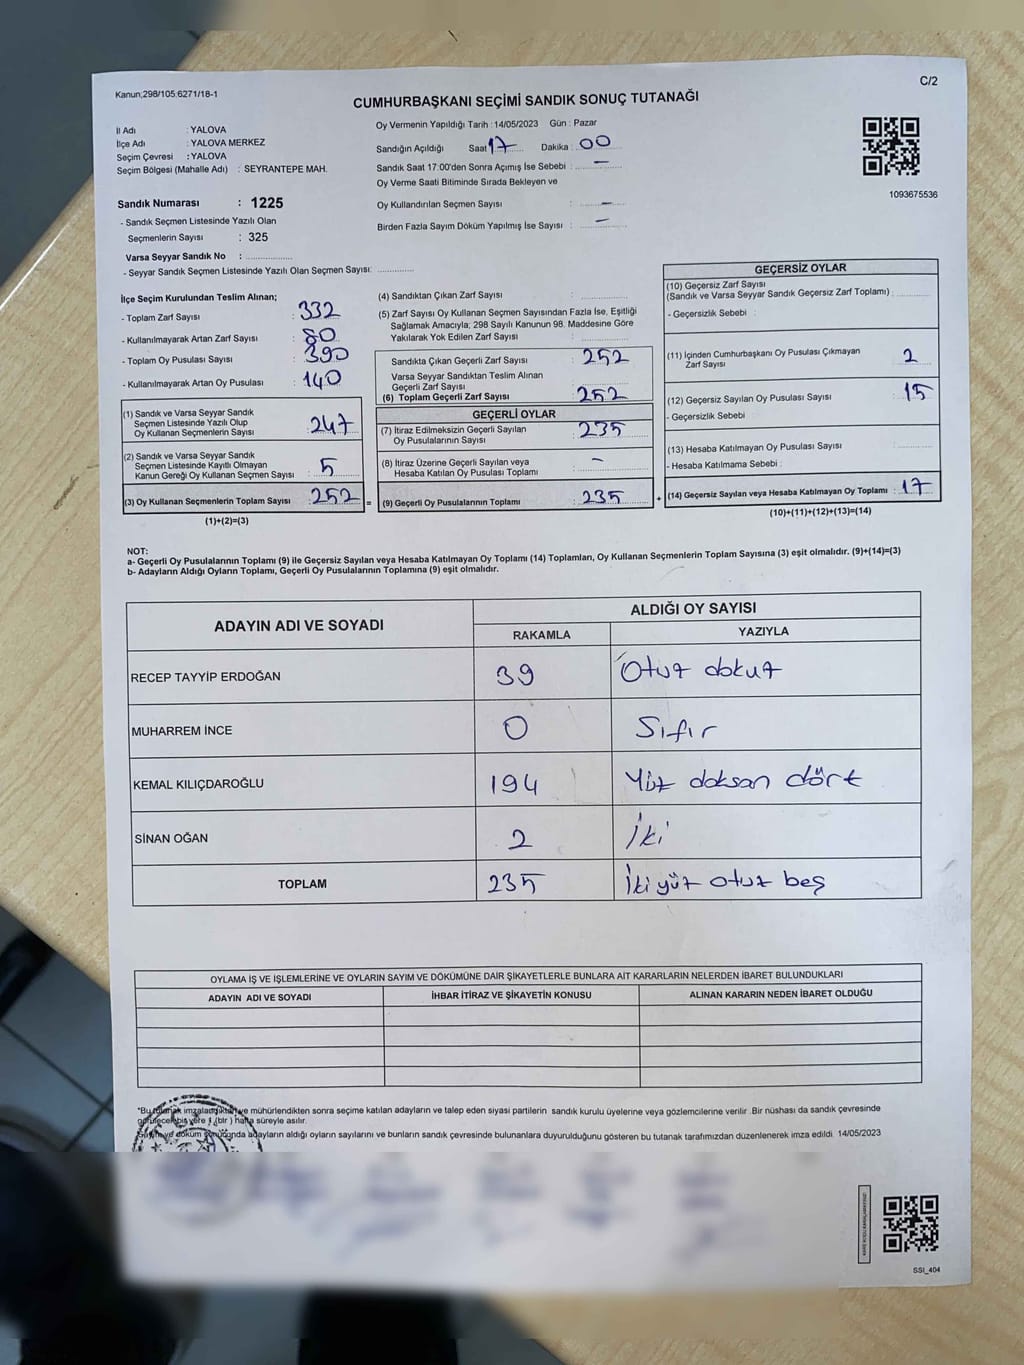 Kanun,298/105.6271/18-1
C/2
CUMHURBAŞKANI SEÇİMİ SANDIK SONUÇ TUTANAĞI
İl Adı : YALOVA
İlçe Adı : YALOVA MERKEZ
Seçim Çevresi : YALOVA
Seçim Bölgesi (Mahalle Adı) : SEYRANTEPE MAH.
Sandık Numarası : 1225
- Sandık Seçmen Listesinde Yazılı Olan
Seçmenlerin Sayısı : 325
Varsa Seyyar Sandık No : ....................
- Seyyar Sandık Seçmen Listesinde Yazılı Olan Seçmen Sayısı: ..............
Oy Vermenin Yapıldığı Tarih : 14/05/2023 Gün : Pazar
Sandığın Açıldığı Saat 17 Dakika : 00
Sandık Saat 17:00'den Sonra Açımış İse Sebebi : —
Oy Verme Saati Bitiminde Sırada Bekleyen ve
Oy Kullandırılan Seçmen Sayısı : —
Birden Fazla Sayım Döküm Yapılmış İse Sayısı : —
1093675536
İlçe Seçim Kurulundan Teslim Alınan;
- Toplam Zarf Sayısı : 332
- Kullanılmayarak Artan Zarf Sayısı : 80
- Toplam Oy Pusulası Sayısı : 390
- Kullanılmayarak Artan Oy Pusulası : 140
(1) Sandık ve Varsa Seyyar Sandık
Seçmen Listesinde Yazılı Olup
Oy Kullanan Seçmenlerin Sayısı : 247
(2) Sandık ve Varsa Seyyar Sandık
Seçmen Listesinde Kayıtlı Olmayan
Kanun Gereği Oy Kullanan Seçmen Sayısı : 5
(3) Oy Kullanan Seçmenlerin Toplam Sayısı : 252 =
(1)+(2)=(3)
(4) Sandıktan Çıkan Zarf Sayısı : ....................
(5) Zarf Sayısı Oy Kullanan Seçmen Sayısından Fazla İse, Eşitliği
Sağlamak Amacıyla; 298 Sayılı Kanunun 98. Maddesine Göre
Yakılarak Yok Edilen Zarf Sayısı : ....................
Sandıkta Çıkan Geçerli Zarf Sayısı : 252
Varsa Seyyar Sandıktan Teslim Alınan
Geçerli Zarf Sayısı : ....................
(6) Toplam Geçerli Zarf Sayısı : 252
GEÇERLİ OYLAR
(7) İtiraz Edilmeksizin Geçerli Sayılan
Oy Pusulalarının Sayısı : 235
(8) İtiraz Üzerine Geçerli Sayılan veya
Hesaba Katılan Oy Pusulası Toplamı : —
(9) Geçerli Oy Pusulalarının Toplamı : 235 +
GEÇERSİZ OYLAR
(10) Geçersiz Zarf Sayısı
(Sandık ve Varsa Seyyar Sandık Geçersiz Zarf Toplamı) : ..............
- Geçersizlik Sebebi :
(11) İçinden Cumhurbaşkanı Oy Pusulası Çıkmayan
Zarf Sayısı : 2
(12) Geçersiz Sayılan Oy Pusulası Sayısı : 15
- Geçersizlik Sebebi :
(13) Hesaba Katılmayan Oy Pusulası Sayısı : ..............
- Hesaba Katılmama Sebebi :
(14) Geçersiz Sayılan veya Hesaba Katılmayan Oy Toplamı : 17
(10)+(11)+(12)+(13)=(14)
NOT:
a- Geçerli Oy Pusulalarının Toplamı (9) ile Geçersiz Sayılan veya Hesaba Katılmayan Oy Toplamı (14) Toplamları, Oy Kullanan Seçmenlerin Toplam Sayısına (3) eşit olmalıdır. (9)+(14)=(3)
b- Adayların Aldığı Oyların Toplamı, Geçerli Oy Pusulalarının Toplamına (9) eşit olmalıdır.
ADAYIN ADI VE SOYADI
ALDIĞI OY SAYISI
RAKAMLA YAZIYLA
RECEP TAYYİP ERDOĞAN 39 Otuz dokuz
MUHARREM İNCE 0 Sıfır
KEMAL KILIÇDAROĞLU 194 Yüz doksan dört
SİNAN OĞAN 2 İki
TOPLAM 235 İki yüz otuz beş
OYLAMA İŞ VE İŞLEMLERİNE VE OYLARIN SAYIM VE DÖKÜMÜNE DAİR ŞİKAYETLERLE BUNLARA AİT KARARLARIN NELERDEN İBARET BULUNDUKLARI
ADAYIN ADI VE SOYADI İHBAR İTİRAZ VE ŞİKAYETİN KONUSU ALINAN KARARIN NEDEN İBARET OLDUĞU
"Bu tutanak imzalandıktan ve mühürlendikten sonra seçime katılan adayların ve talep eden siyasi partilerin sandık kurulu üyelerine veya gözlemcilerine verilir .Bir nüshası da sandık çevresinde
görülecek bir yere 1 (bir ) hafta süreyle asılır.
Sayım ve döküm sonunda adayların aldığı oyların sayılarını ve bunların sandık çevresinde bulunanlara duyurulduğunu gösteren bu tutanak tarafımızdan düzenlenerek imza edildi. 14/05/2023
SSI_404